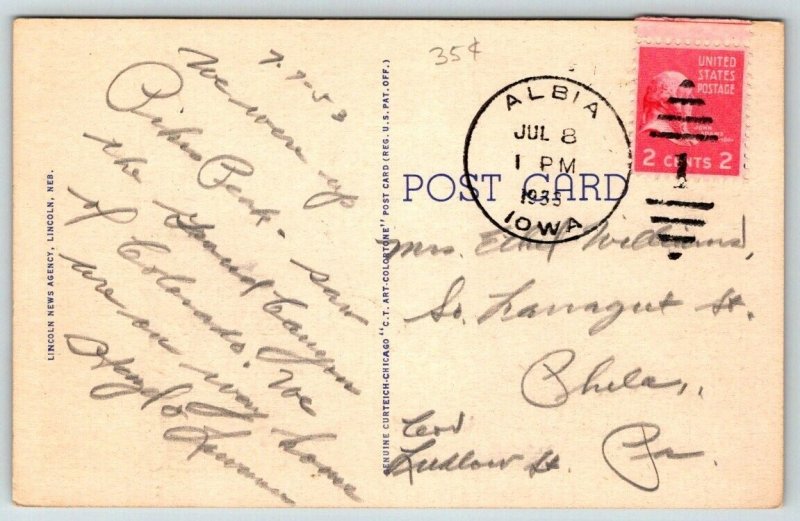 7.7-53
We were up
Pikes Peak. Saw
the Grand Canyon
of Colorado. We
are on way home
LINCOLN NEWS AGENCY, LINCOLN, NEB.
GENUINE CURTEICH-CHICAGO "C.T. ART-COLORTONE" POST CARD (REG. U.S. PAT. OFF.)
35¢
ALBIA
JUL 8
1 PM
IOWA
UNITED
STATES
POSTAGE
JOHN
ADAMS
2 CENTS 2
POST CARD
Mrs. Ethel Williams,
So. Farragut St.
Phila,,
Cor
Ludlow St. Pa